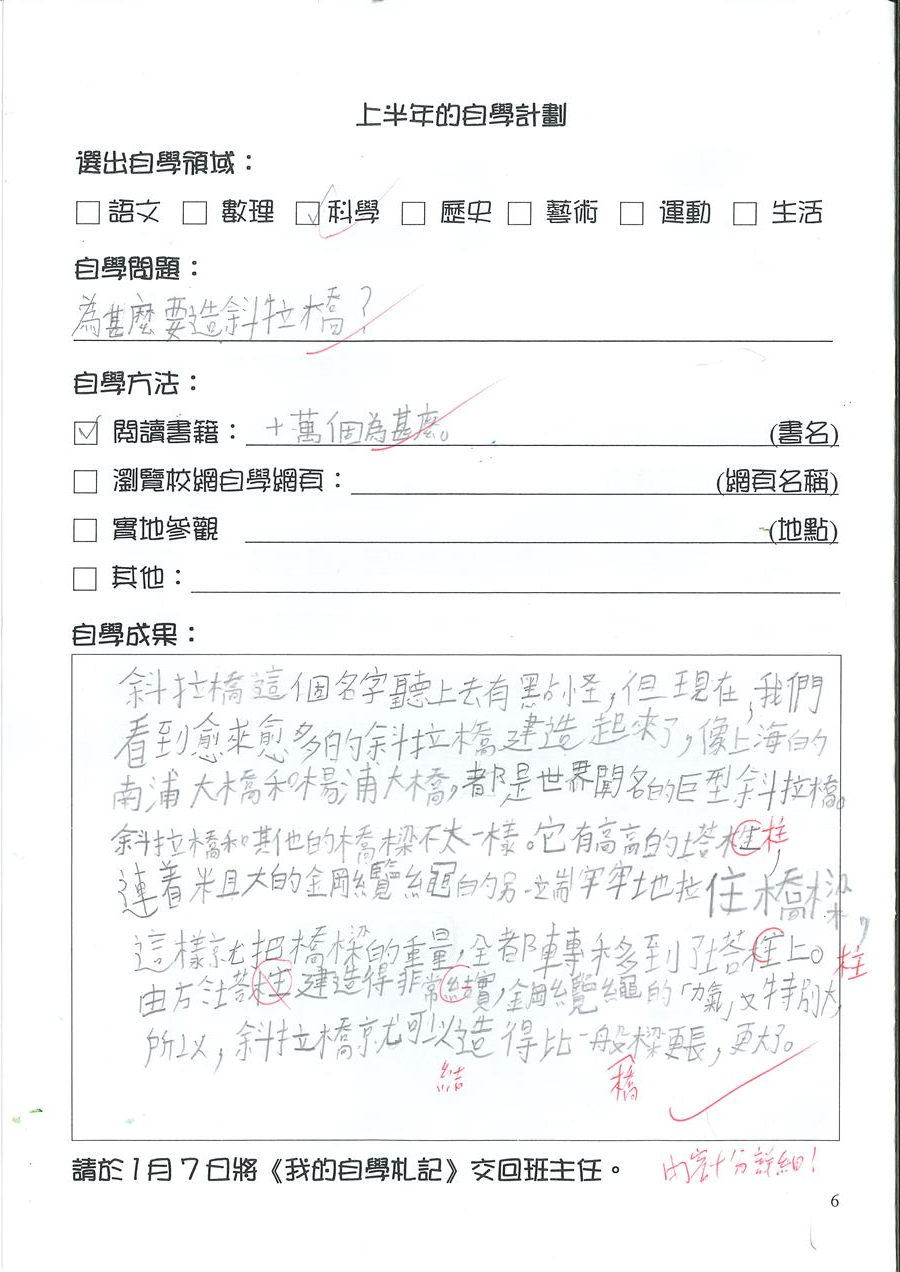 上半年的自學計劃
選出自學領域：
□語文 □數理 ☑科學 □歷史 □藝術 □運動 □生活
自學問題：
為甚麼要造斜拉橋？
自學方法：
☑ 閱讀書籍：十萬個為甚麼。(書名)
□ 瀏覽校網自學網頁：(網頁名稱)
□ 實地參觀 (地點)
□ 其他：
自學成果：
斜拉橋這個名字聽上去有點怪，但現在，我們
看到愈來愈多的斜拉橋建造起來了，像上海的
南浦大橋和楊浦大橋，都是世界聞名的巨型斜拉橋。
斜拉橋和其他的橋樑不太一樣。它有高高的塔柱 柱，
連着粗大的鋼纜繩的另一端牢牢地拉住橋樑，
這樣就把橋樑的重量，全都轉移到了塔柱上。柱
由於塔柱建造得非常結實，鋼纜繩的「力氣」又特別大，
所以，斜拉橋就可以造得比一般樑更長，更大了。
結 橋
請於1月7日將《我的自學札記》交回班主任。
內容十分詳細！
6